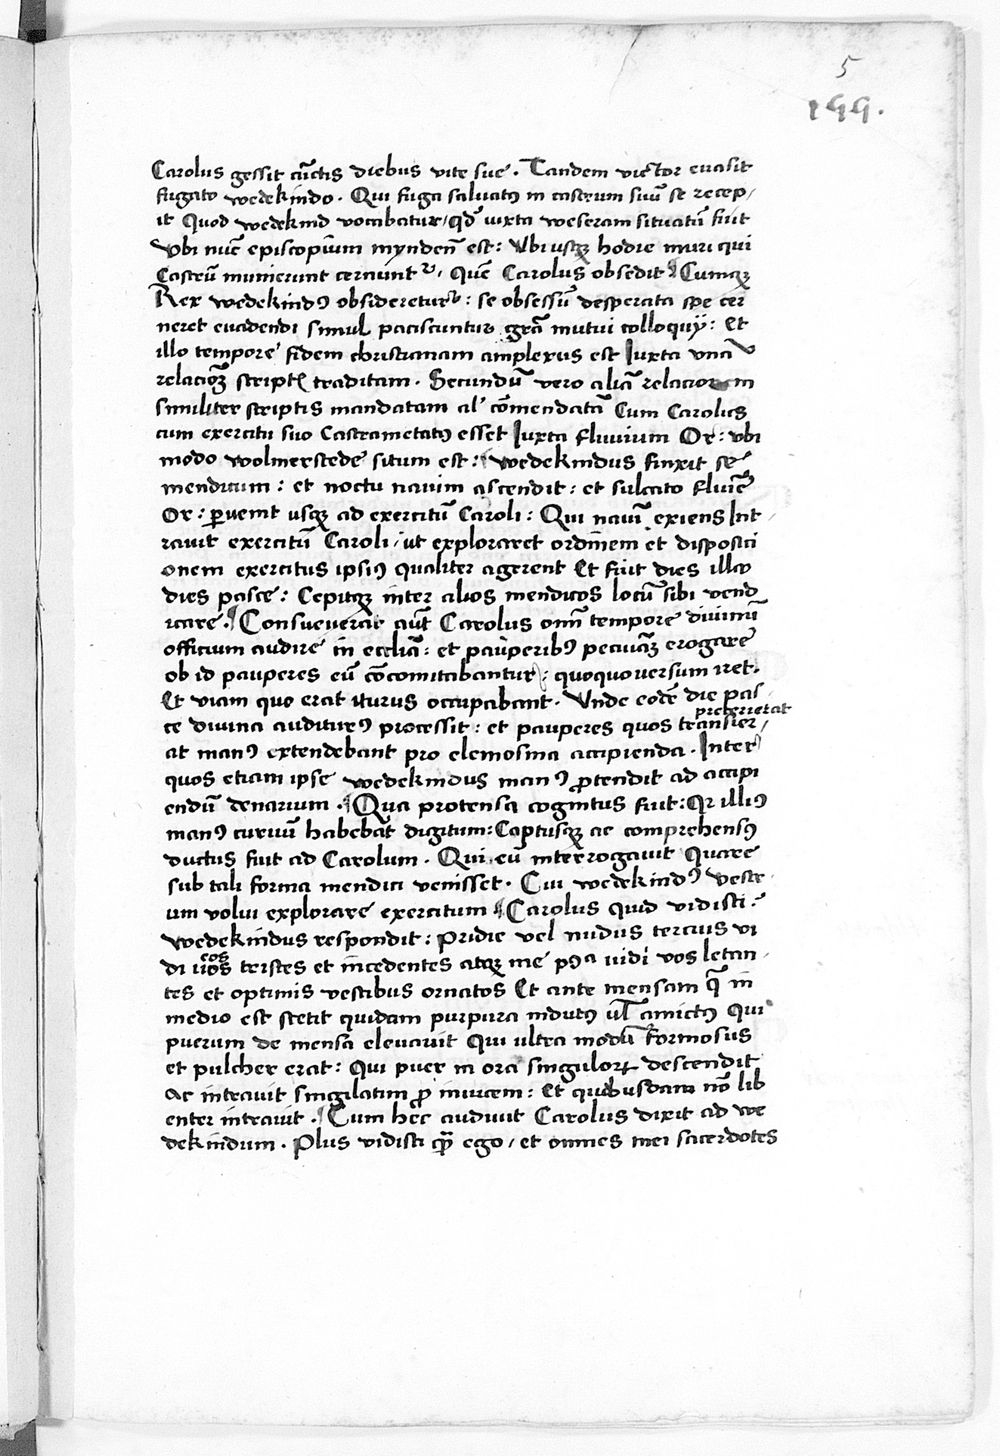 5
199.
Carolus gessit cūctis diebus vite sue. Tandem victor euasit
fugato wedekindo. Qui fuga saluatꝰ in castrum suū se recep/
it Quod wedekind vocabatur/ qd̄ iuxta weseram situatū fuit
Vbi nūc episcopiūm myndeñ est: Vbi usqꝫ hodie muri qui
Castrū munierunt cernunt᷑, Quē Carolus obsedit Cumqꝫ
Rex wedekindꝰ obsideretur: se obsessū desperata spe cer
neret euadendi simul paciscuntur grā mutui colloquÿ: Et
illo tempore fidem christianam amplexus est Iuxta vnā
relacioꝫ script͛ traditam. Secundū vero aliā relacionem
similiter scriptis mandatam al' cōmendatā Cum Carolus
cum exercitu suo Castrametatꝰ esset Iuxta fluuium Or: vbi
modo wolmerstede situm est: wedekindus finxit se
mendicum: et noctu nauim ascendit: et sulcato fluiē
Or: ꝑuenit usqꝫ ad exercitū Caroli: Qui nauī exiens Int
rauit exercitū Caroli/ ut exploraret ordinem et dispositi
onem exercitus ipsiꝰ qualiter agerent Et fuit dies illa
dies pasce: Cepitqꝫ inter alios mendicos locū sibi vend
icare. Consueuerat aūt Carolus omī tempore diuinū
officium audire in ecclīa: et pauperibꝰ pecuniā erogare
ob id pauperes eū cōcomitabantur: quoquouersum iret.
Et viam quo erat iturus occupabant. Vnde eodē die pas-
ce diuina auditurꝰ processit: et pauperes quos transier/
preterierat
at manꝰ extendebant pro elemosina accipienda. Inter
quos etiam ipse wedekindus manꝰ ꝓtendit ad accipi
endū denarium. Qua protensa cognitus fuit: Qr illiꝰ
manꝰ curuū habebāt digitum: Captusqꝫ ac comprehensꝰ
ductus fuit ad Carolum. Qui eū interrogauit Quare
sub tali forma mendici venisset. Cui wedekindꝰ Vestr
um volui explorare exercitum Carolus quid vidisti?
wedekindus respondit: Pridie vel nudus tercius vi
di uos tristes et incedentes atqꝫ me pꝰa uidi vos letan-
eos
tes et optimis vestibus ornatos Et ante mensam q̄ in
medio est stetit quidam purpura indutꝰ ul̄ amictꝰ Qui
puerum de mensa eleuauit Qui ultra modū formosus
et pulcher erat: Qui puer in ora singuloꝝ descendit
Ac intrauit singilatim ꝓ inuicem: Et quibusdam nō lib
enter intrauit. Cum hec audiuit Carolus dixit ad we
dekindum. Plus vidisti qꝫ̄ ego/ et omnes mei sacerdotes